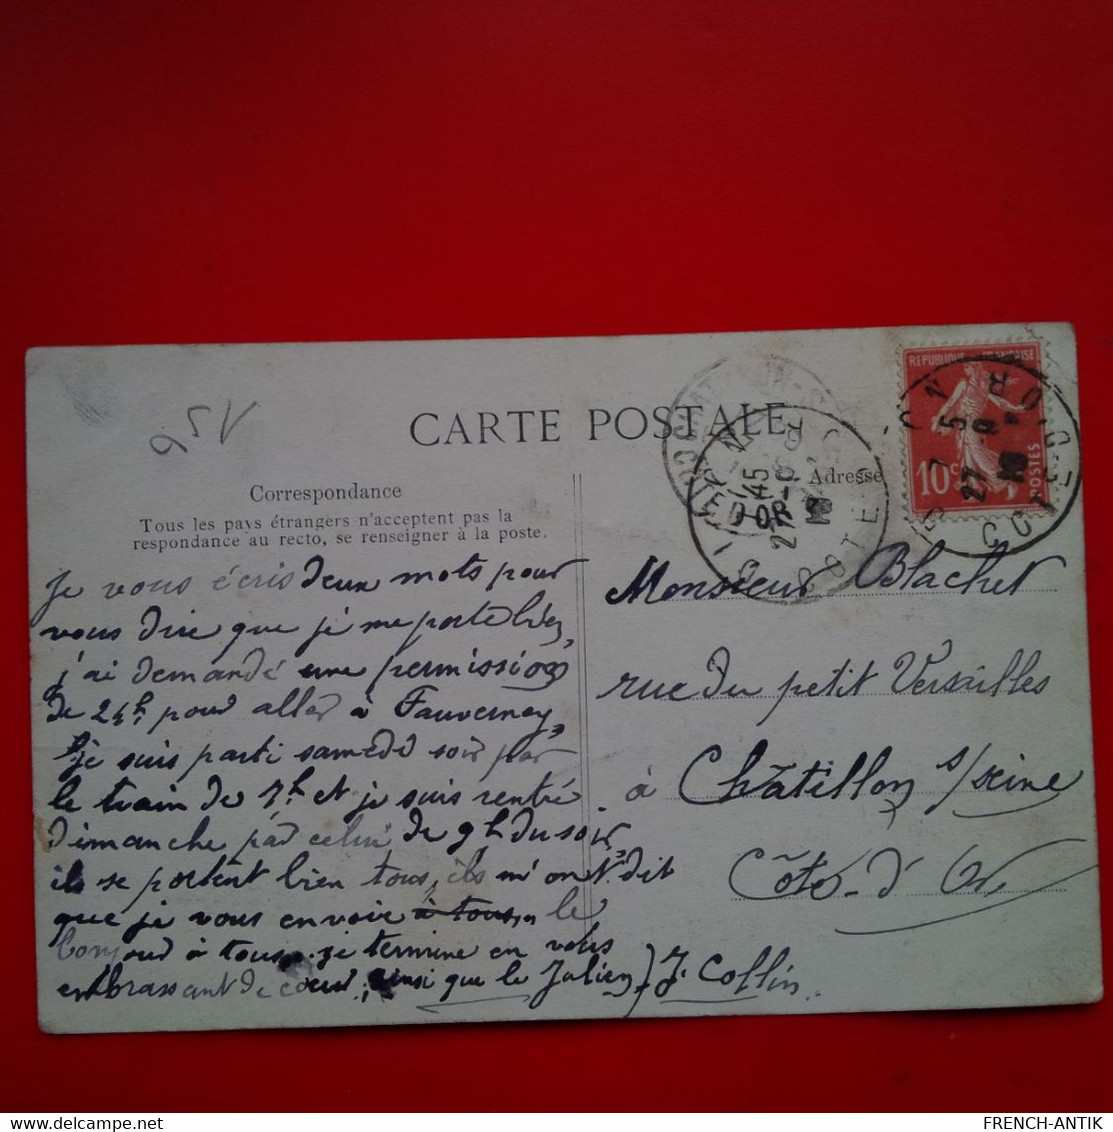 95V
CARTE POSTALE
Correspondance
Adresse
Tous les pays étrangers n'acceptent pas la
respondance au recto, se renseigner à la poste.
REPUBLIQUE FRANÇAISE
10c
POSTES
DIJON
COTE-D'OR
7 45
27
Je vous écris deux mots pour
vous dire que je me porte bien,
j'ai demandé une permission
de 24h pour aller à Fauverney,
Je suis parti samedi soir par
le train de 7h et je suis rentré
dimanche par celui de 9h du soir,
ils se portent bien tous, ils m'ont dit
que je vous envoie à tous, le
bonjour à tous. je termine en vous
embrassant de cœur, ainsi que le Julien, J. Collin
Monsieur Blachet
rue du petit Versailles
à Châtillon s/seine
Côte-d'Or
FRENCH-ANTIK